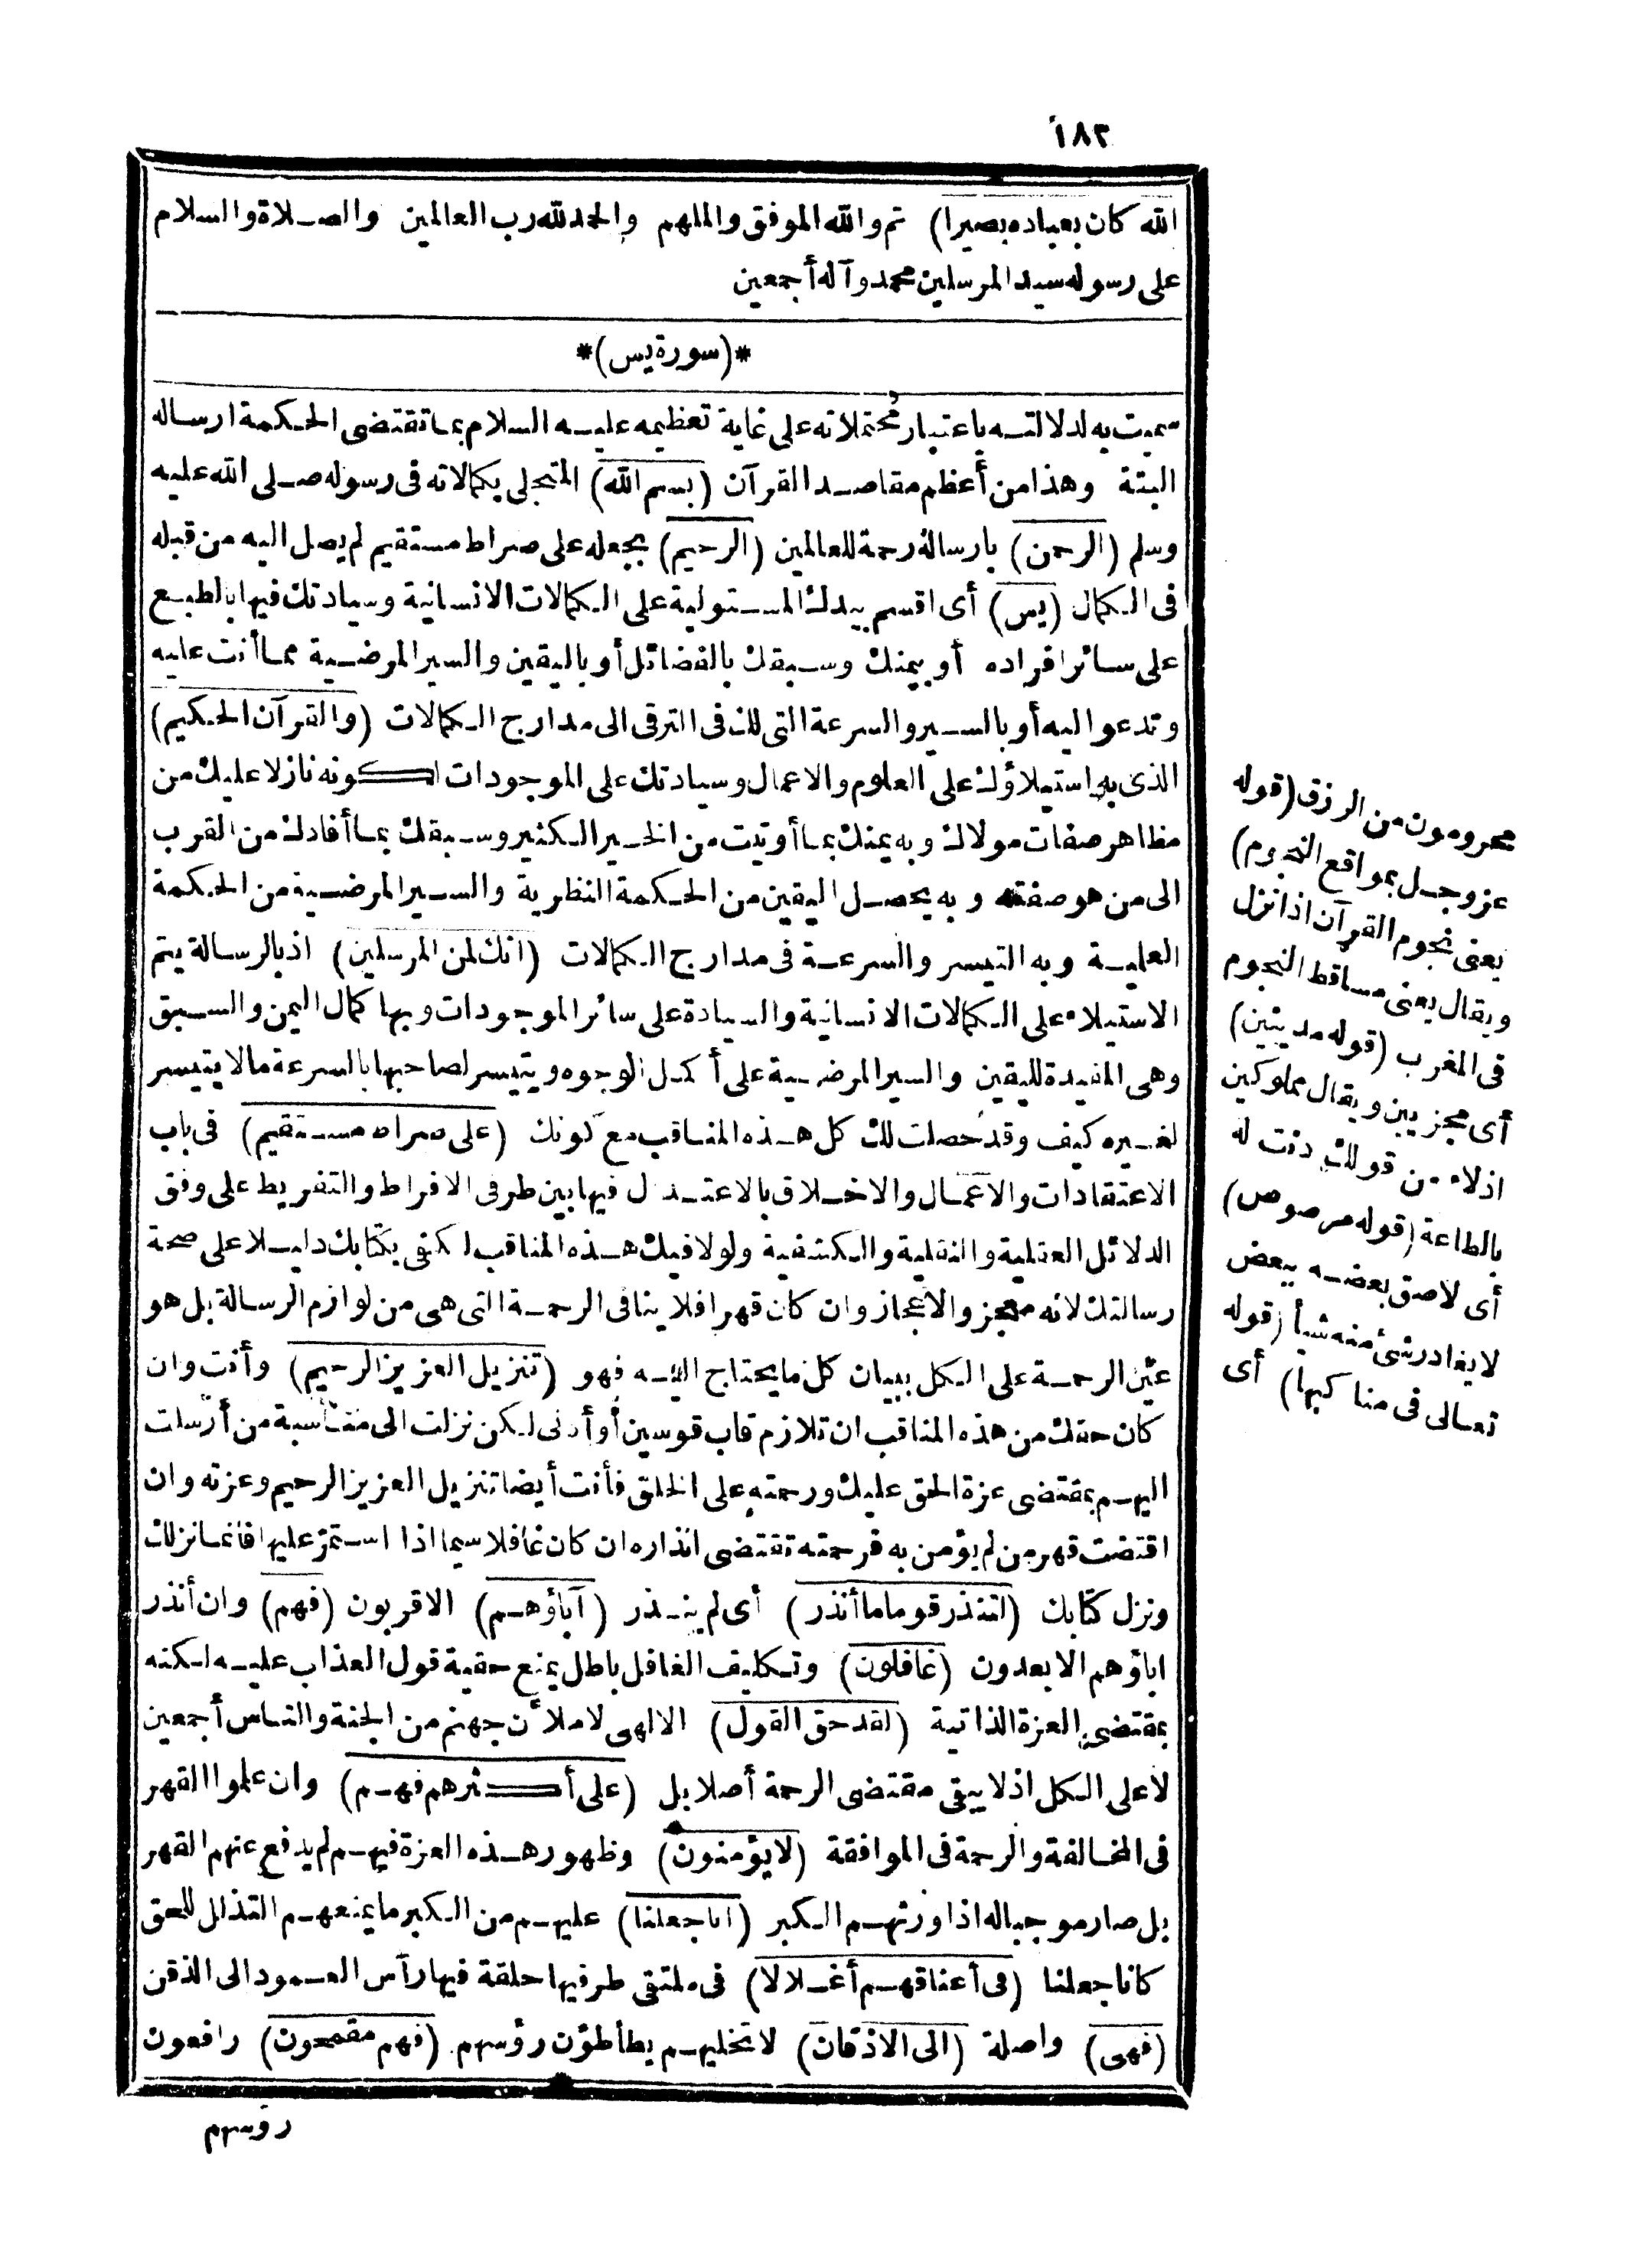 ١٨٢
الله كان بعباده بصيرا) تم والله الموفق والملهم والحمد لله رب العالمين والصلاة والسلام
على رسوله سيد المرسلين محمد وآله أجمعين
*(سورة يس)*
سميت به لدلالته باعتبار محتملاته على غاية تعظيمه عليه السلام بما تقتضى الحكمة ارساله
البتة وهذا من أعظم مقاصد القرآن (بسم الله) المتجلى بكمالاته فى رسوله صلى الله عليه
وسلم (الرحمن) بارساله رحمة للعالمين (الرحيم) بجعله على صراط مستقيم لم يصل اليه من قبله
فى الكمال (يس) أى اقسم بيدك المستولية على الكمالات الانسانية وسيادتك فيها بالطبع
على سائر افراده أو بيمنك وسبقك بالفضائل أو باليقين والسير المرضية مما أنت عليه
وتدعو اليه أو باليسير والسرعة التى لك فى الترقى الى مدارج الكمالات (والقرآن الحكيم)
الذى به استيلاؤك على العلوم والاعمال وسيادتك على الموجودات لكونه نازلا عليك من
مظاهر صفات مولاك وبه يمنك بما أوتيت من الخير الكثير وسبقك بما أفادك من القرب
الى من هو صفته وبه يحصل اليقين من الحكمة النظرية والسير المرضية من الحكمة
العملية وبه التيسر والسرعة فى مدارج الكمالات (انك لمن المرسلين) اذ بالرسالة يتم
الاستيلاء على الكمالات الانسانية والسيادة على سائر الموجودات وبها كمال اليمن والسبق
وهى المفيدة لليقين والسير المرضية على أكمل الوجوه ويتيسر لصاحبها بالسرعة مالا يتيسر
لغيره كيف وقد حصلت لك كل هذه المناقب مع كونك (على صراط مستقيم) فى باب
الاعتقادات والاعمال والاخلاق بالاعتدال فيها بين طرفى الافراط والتفريط على وفق
الدلائل العقلية والنقلية والكشفية ولولا فيك هذه المناقب لكفى بكتابك دليلا على صحة
رسالتك لانه معجز والاعجاز وان كان قهرا فلا ينافى الرحمة التى هى من لوازم الرسالة بل هو
عين الرحمة على الكل ببيان كل ما يحتاج اليه فهو (تنزيل العزيز الرحيم) وأنت وان
كان حقك من هذه المناقب ان تلازم قاب قوسين أو أدنى لكن نزلت الى مناسبة من أرسلت
اليهم بمقتضى عزة الحق عليك ورحمته على الخلق فأنت أيضا تنزيل العزيز الرحيم وعزته وان
اقتضت قهر من لم يؤمن به فرحمته تقتضى انذاره ان كان غافلا سيما اذا استمر عليها فانما نزلك
ونزل كتابك (لتنذر قوما ما أنذر) أى لم ينذر (آباؤهم) الاقربون (فهم) وان أنذر
اباؤهم الابعدون (غافلون) وتكليف الغافل باطل يمنع حقية قول العذاب عليه لكنه
بمقتضى العزة الذاتية (لقد حق القول) الالهى لاملأن جهنم من الجنة والناس أجمعين
لا على الكل اذ لا يبقى مقتضى الرحمة أصلا بل (على أكثرهم فهم) وان علموا القهر
فى المخالفة والرحمة فى الموافقة (لا يؤمنون) وظهور هذه العزة فيهم لم يدفع عنهم القهر
بل صار موجبا له اذ اورثهم الكبر (انا جعلنا) عليهم من الكبر ما يمنعهم التذلل للحق
كانا جعلنا (فى أعناقهم أغلالا) فى ملتقى طرفيها حلقة فيها رأس العمود الى الذقن
(فهى) واصلة (الى الاذقان) لا تخليهم يطأطؤن رؤسهم (فهم مقمحون) رافعون
رؤسهم
محرومون من الرزق (قوله
عز وجل بمواقع النجوم)
يعنى نجوم القرآن اذا نزل
ويقال يعنى مساقط النجوم
فى المغرب (قوله مدينين)
أى مجزيين ويقال مملوكين
اذلاء من قولك دنت له
بالطاعة (قوله مرصوص)
أى لاصق بعضه ببعض
لا يغادر شئ منه شيأ (قوله
تعالى فى مناكبها) أى